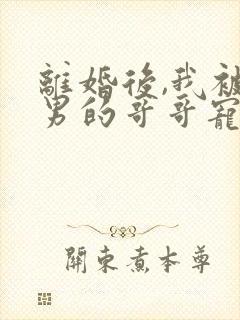 離婚後,我被
男的哥哥寵
關東煮本尊